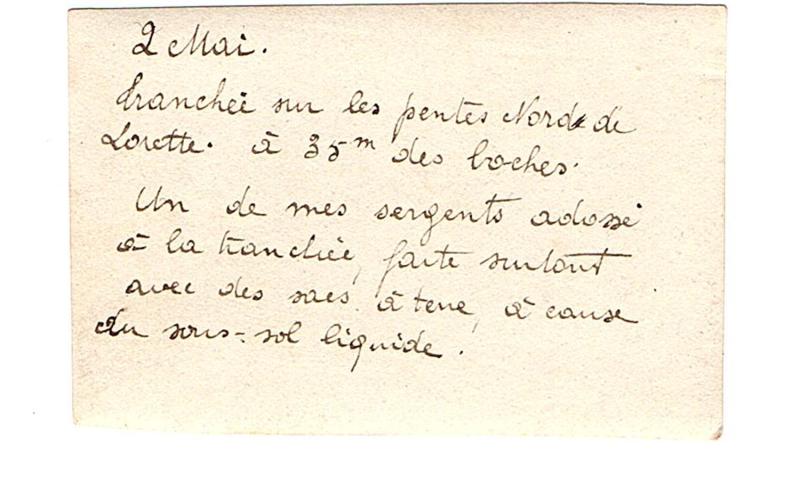 2 Mai.
Tranchée sur les pentes Nord de
Lorette. à 35m des boches.
Un de mes sergents adossé
à la tranchée, faite surtout
avec des sacs à terre, à cause
du sous-sol liquide.